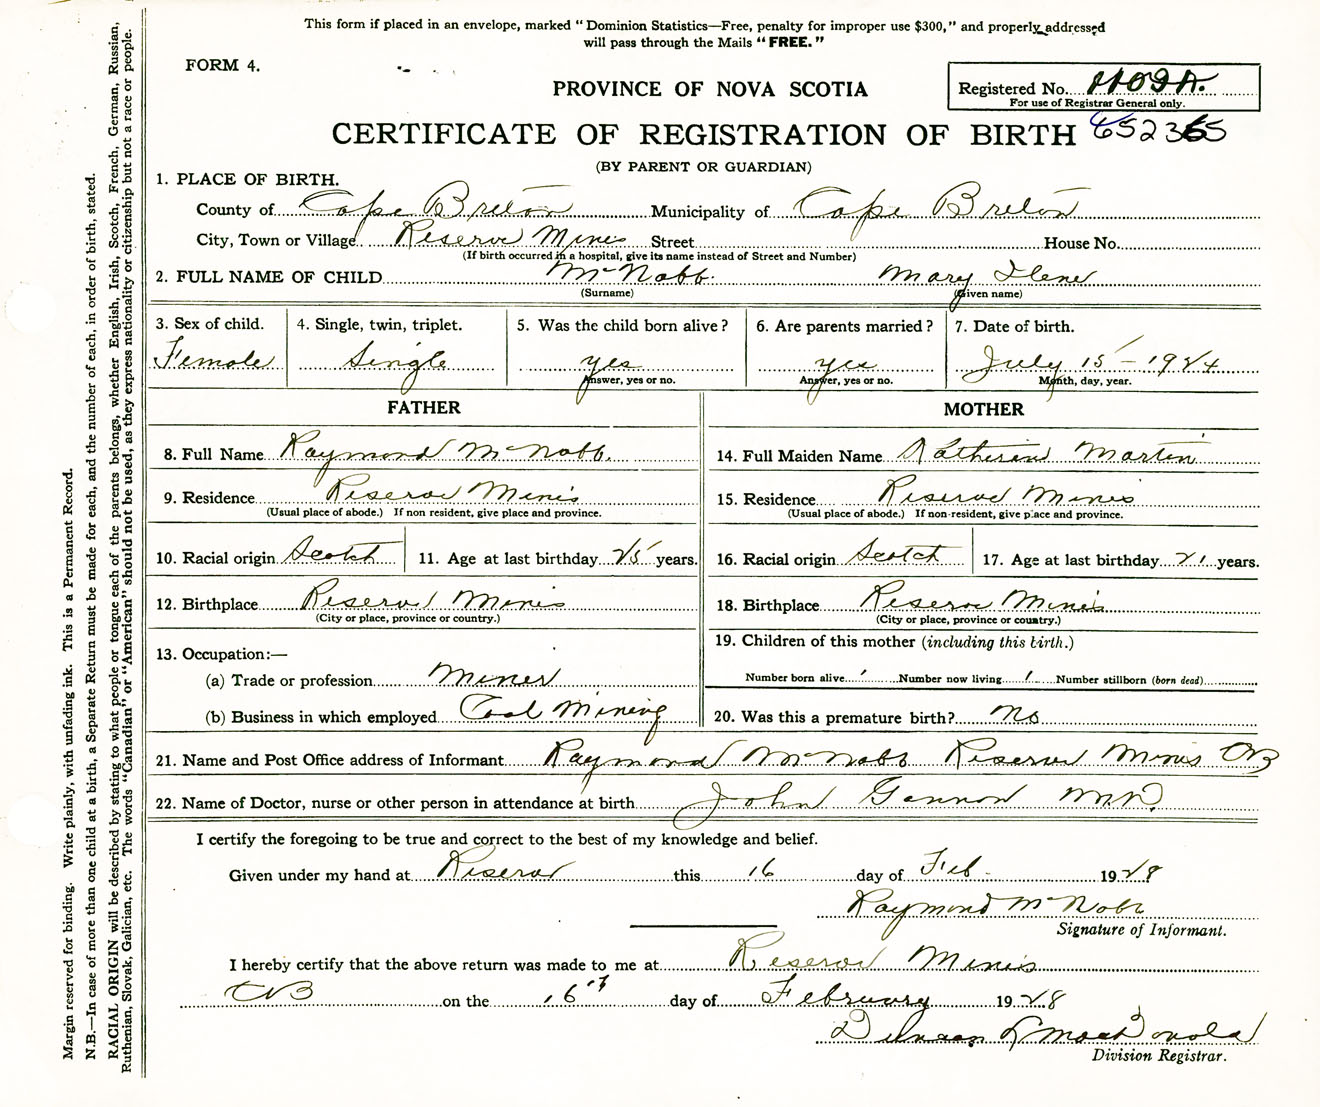 This form if placed in an envelope, marked "Dominion Statistics—Free, penalty for improper use $300," and properly addressed
will pass through the Mails "FREE."
FORM 4.
PROVINCE OF NOVA SCOTIA
Registered No.
For use of Registrar General only.
CERTIFICATE OF REGISTRATION OF BIRTH
(BY PARENT OR GUARDIAN)
1. PLACE OF BIRTH.
County of Cape Breton Municipality of Cape Breton
City, Town or Village Reserve Mines Street House No.
(If birth occurred in a hospital, give its name instead of Street and Number)
2. FULL NAME OF CHILD McNabb Mary Ilene
(Surname) (Given name)
3. Sex of child. 4. Single, twin, triplet. 5. Was the child born alive? 6. Are parents married? 7. Date of birth.
Female Single yes yes July 15 - 1924
Answer, yes or no. Answer, yes or no. Month, day, year.
FATHER MOTHER
8. Full Name Raymond McNabb 14. Full Maiden Name Katherine Martin
9. Residence Reserve Mines 15. Residence Reserve Mines
(Usual place of abode.) If non resident, give place and province. (Usual place of abode.) If non-resident, give place and province.
10. Racial origin Scotch 11. Age at last birthday 25 years. 16. Racial origin Scotch 17. Age at last birthday 21 years.
12. Birthplace Reserve Mines 18. Birthplace Reserve Mines
(City or place, province or country.) (City or place, province or country.)
13. Occupation:— 19. Children of this mother (including this birth.)
(a) Trade or profession Miner Number born alive 1 Number now living 1 Number stillborn (born dead)
(b) Business in which employed Coal Mining 20. Was this a premature birth? No
21. Name and Post Office address of Informant Raymond McNabb Reserve Mines CB
22. Name of Doctor, nurse or other person in attendance at birth John Gannon M.D.
I certify the foregoing to be true and correct to the best of my knowledge and belief.
Given under my hand at Reserve this 16 day of Feb. 1928
Raymond McNabb
Signature of Informant.
I hereby certify that the above return was made to me at Reserve Mines
CB on the 16th day of February 1928
Duncan L MacDonald
Division Registrar.
Margin reserved for binding. Write plainly, with unfading ink. This is a Permanent Record.
N.B.—In case of more than one child at a birth, a Separate Return must be made for each, and the number of each, in order of birth, stated.
RACIAL ORIGIN will be described by stating to what people or tongue each of the parents belongs, whether English, Irish, Scotch, French, German, Russian,
Ruthenian, Slovak, Galician, etc. The words "Canadian" or "American" should not be used, as they express nationality or citizenship but not a race or people.